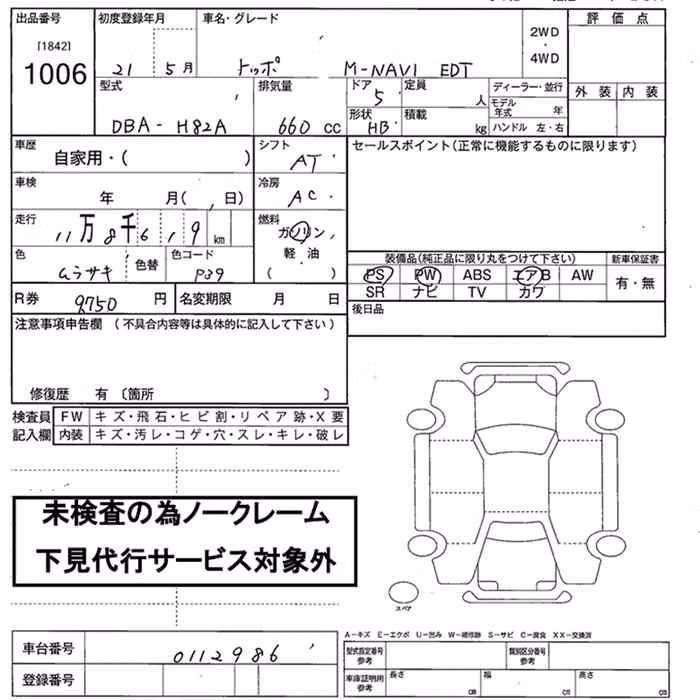 出品番号 初度登録年月 車名・グレード 評価点
[1842]
1006
21 5月 トッポ M-NAVI EDT
2WD
・
4WD
外装 内装
型式 排気量 ドア 定員 ディーラー・並行
DBA-H82A 660 cc 5 人 モデル年式 年
形状 積載
HB kg ハンドル 左・右
車歴 シフト セールスポイント(正常に機能するものに限ります)
自家用・( ) AT
車検 冷房
年 月( 日) AC
走行 燃料
11万8千619km ガソリン
軽油
( )
色 色替 色コード
ムラサキ P39
装備品(純正品に限り丸をつけて下さい) 新車保証書
PS PW ABS エアB AW 有・無
SR ナビ TV カワ
R券 9750 円 名変期限 月 日
後日品
注意事項申告欄 (不具合内容等は具体的に記入して下さい)
修復歴 有 〔箇所 〕
検査員 FW キズ・飛石・ヒビ割・リペア跡・X要
記入欄 内装 キズ・汚レ・コゲ・穴・スレ・キレ・破レ
未検査の為ノークレーム
下見代行サービス対象外
スペア
A-キズ E-エクボ U-凹み W-補修跡 S-サビ C-腐食 XX-交換済
車台番号 0112986
登録番号
型式指定番号 参考 類別区分番号 参考
車庫証明用 参考 長さ cm 幅 cm 高さ cm